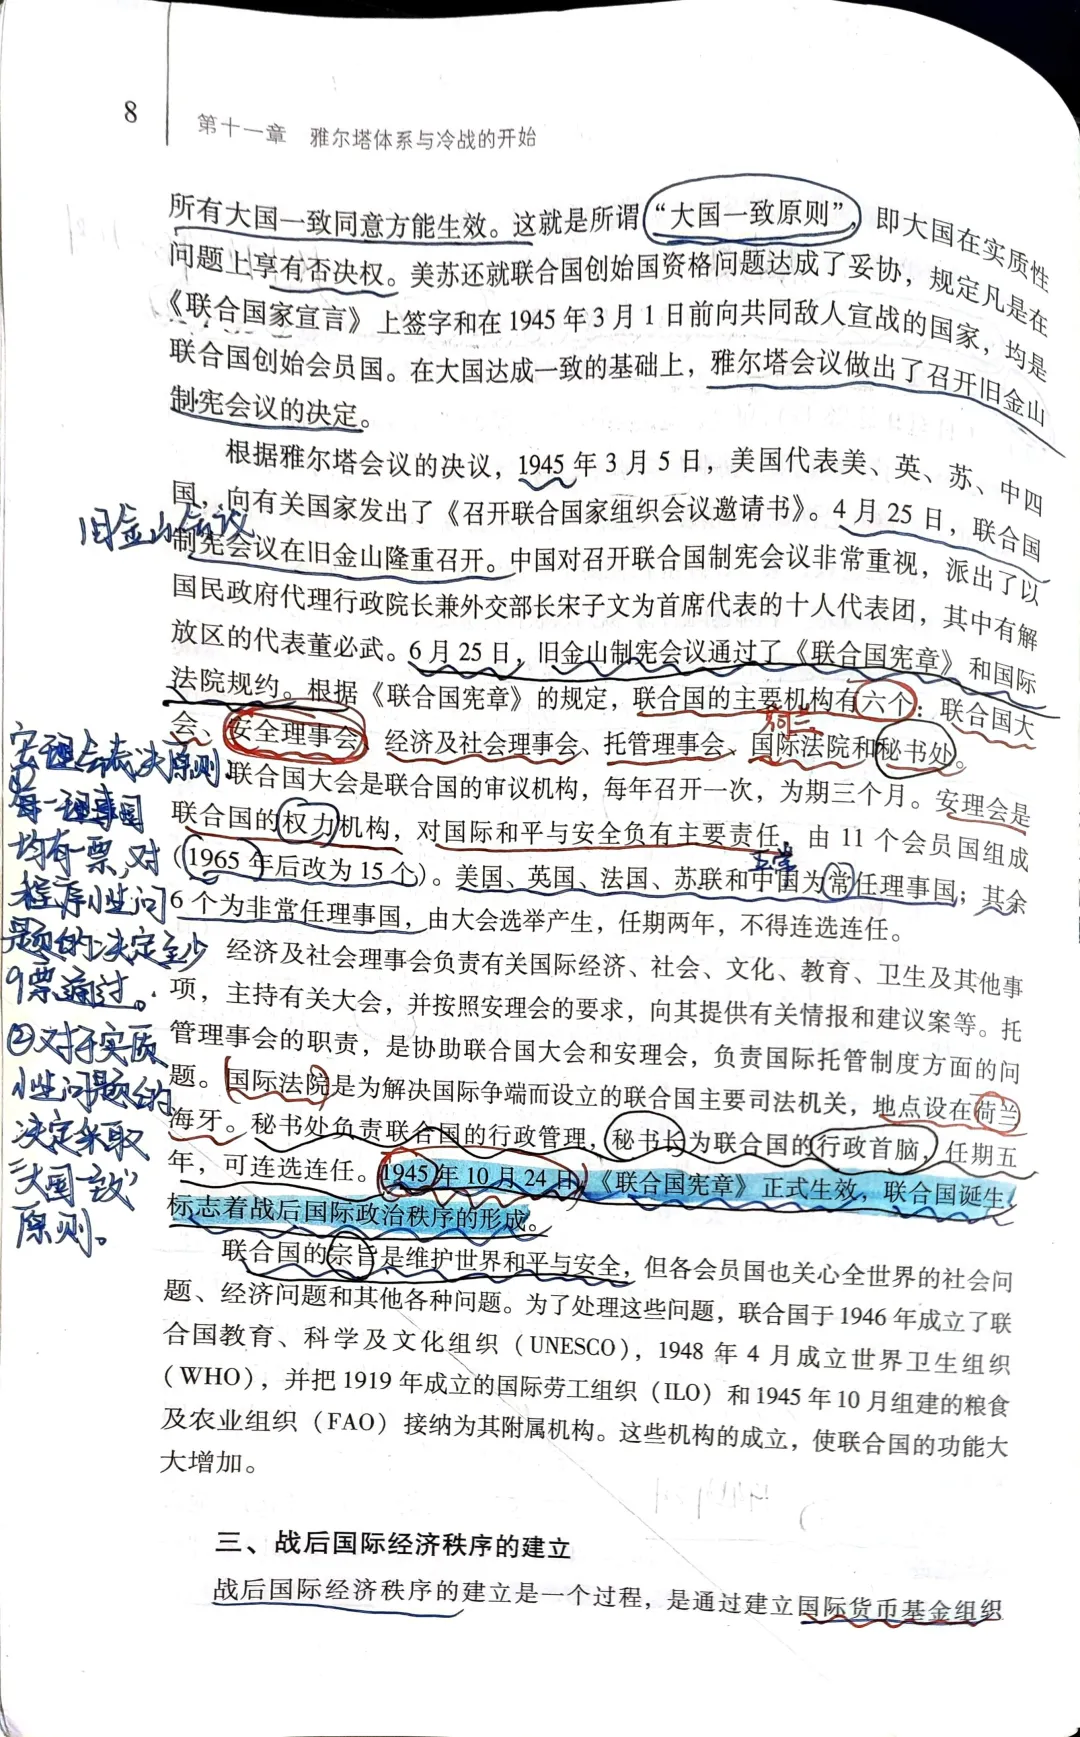 8
第十一章 雅尔塔体系与冷战的开始
所有大国一致同意方能生效。这就是所谓“大国一致原则”，即大国在实质性
问题上享有否决权。美苏还就联合国创始国资格问题达成了妥协，规定凡是在
《联合国家宣言》上签字和在1945年3月1日前向共同敌人宣战的国家，均是
联合国创始会员国。在大国达成一致的基础上，雅尔塔会议做出了召开旧金山
制宪会议的决定。
根据雅尔塔会议的决议，1945年3月5日，美国代表美、英、苏、中四
国，向有关国家发出了《召开联合国家组织会议邀请书》。4月25日，联合国
旧金山会议
制宪会议在旧金山隆重召开。中国对召开联合国制宪会议非常重视，派出了以
国民政府代理行政院长兼外交部长宋子文为首席代表的十人代表团，其中有解
放区的代表董必武。6月25日，旧金山制宪会议通过了《联合国宪章》和国际
法院规约。根据《联合国宪章》的规定，联合国的主要机构有六个：联合国大
荷兰
会、安全理事会、经济及社会理事会、托管理事会、国际法院和秘书处。
联合国大会是联合国的审议机构，每年召开一次，为期三个月。安理会是
联合国的权力机构，对国际和平与安全负有主要责任，由11个会员国组成
五常
（1965年后改为15个）。美国、英国、法国、苏联和中国为常任理事国；其余
6个为非常任理事国，由大会选举产生，任期两年，不得连选连任。
经济及社会理事会负责有关国际经济、社会、文化、教育、卫生及其他事
项，主持有关大会，并按照安理会的要求，向其提供有关情报和建议案等。托
管理事会的职责，是协助联合国大会和安理会，负责国际托管制度方面的问
题。国际法院是为解决国际争端而设立的联合国主要司法机关，地点设在荷兰
海牙。秘书处负责联合国的行政管理，秘书长为联合国的行政首脑，任期五
年，可连选连任。1945年10月24日，《联合国宪章》正式生效，联合国诞生，
标志着战后国际政治秩序的形成。
联合国的宗旨是维护世界和平与安全，但各会员国也关心全世界的社会问
题、经济问题和其他各种问题。为了处理这些问题，联合国于1946年成立了联
合国教育、科学及文化组织（UNESCO），1948年4月成立世界卫生组织
（WHO），并把1919年成立的国际劳工组织（ILO）和1945年10月组建的粮食
及农业组织（FAO）接纳为其附属机构。这些机构的成立，使联合国的功能大
大增加。
安理会表决原则
①每一理事国
均有一票，对
程序性问
题的决定至少
9票通过。
②对于实质
性问题的
决定采取
“大国一致”
原则。
三、战后国际经济秩序的建立
战后国际经济秩序的建立是一个过程，是通过建立国际货币基金组织